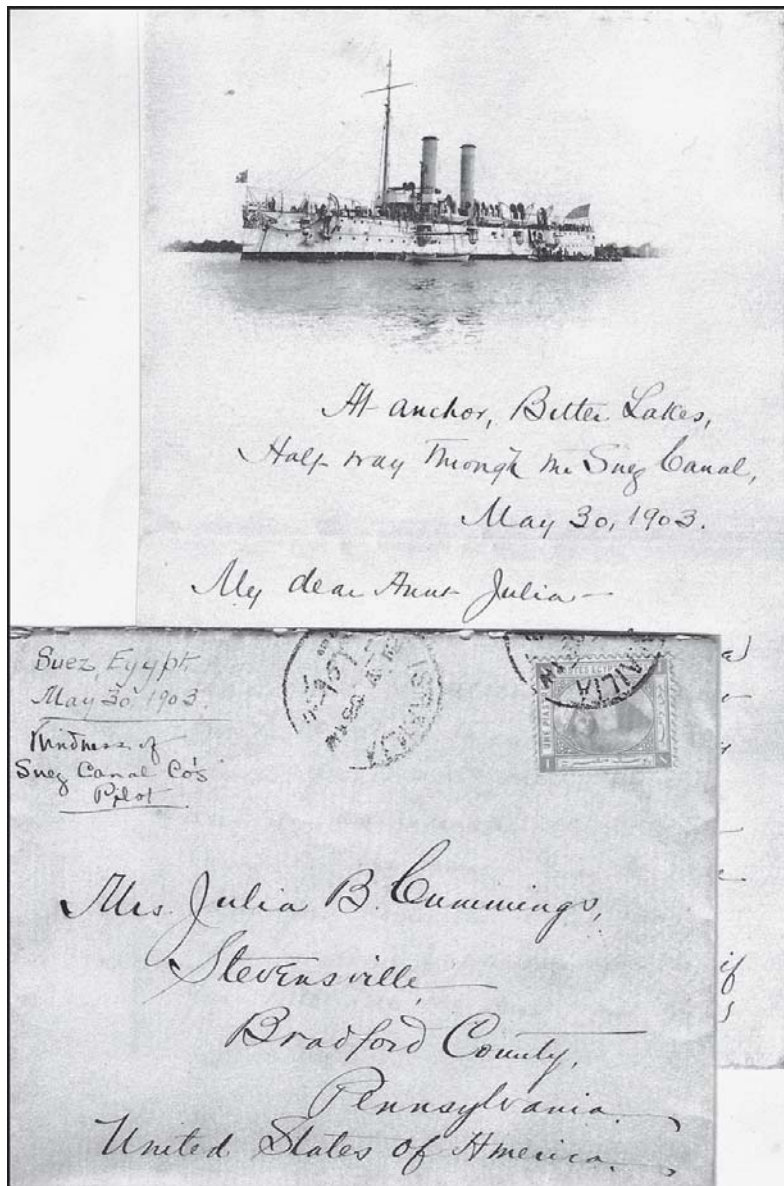 At anchor, Bitter Lakes,
Half way through the Suez Canal,
May 30, 1903.
My dear Aunt Julia—
Suez, Egypt.
May 30, 1903.
Kindness of
Suez Canal Co's
Pilot
ISMAILIA
AILIA
Mrs. Julia B. Cummings,
Stevensville,
Bradford County,
Pennsylvania.
United States of America.
if